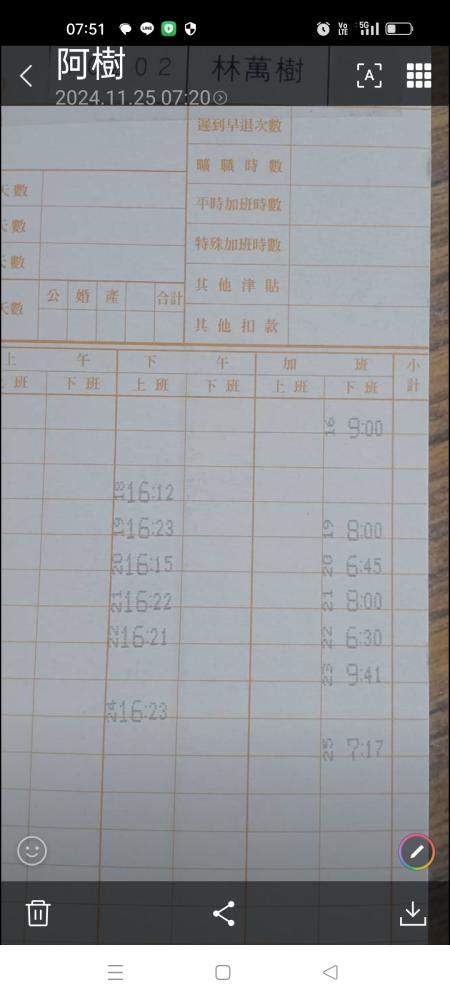 07:51
Vo LTE 5G
阿樹
02 林萬樹
A
2024.11.25 07:20
遲到早退次數
曠職時數
天數
平時加班時數
天數
特殊加班時數
天數
其他津貼
天數 公 婚 產 合計
其他扣款
上 午 下 午 加 班 小計
上班 下班 上班 下班 上班 下班
16 9:00
18 16:12
19 16:23 19 8:00
20 16:15 20 6:45
21 16:22 21 8:00
22 16:21 22 6:30
23 9:41
24 16:23
25 7:17